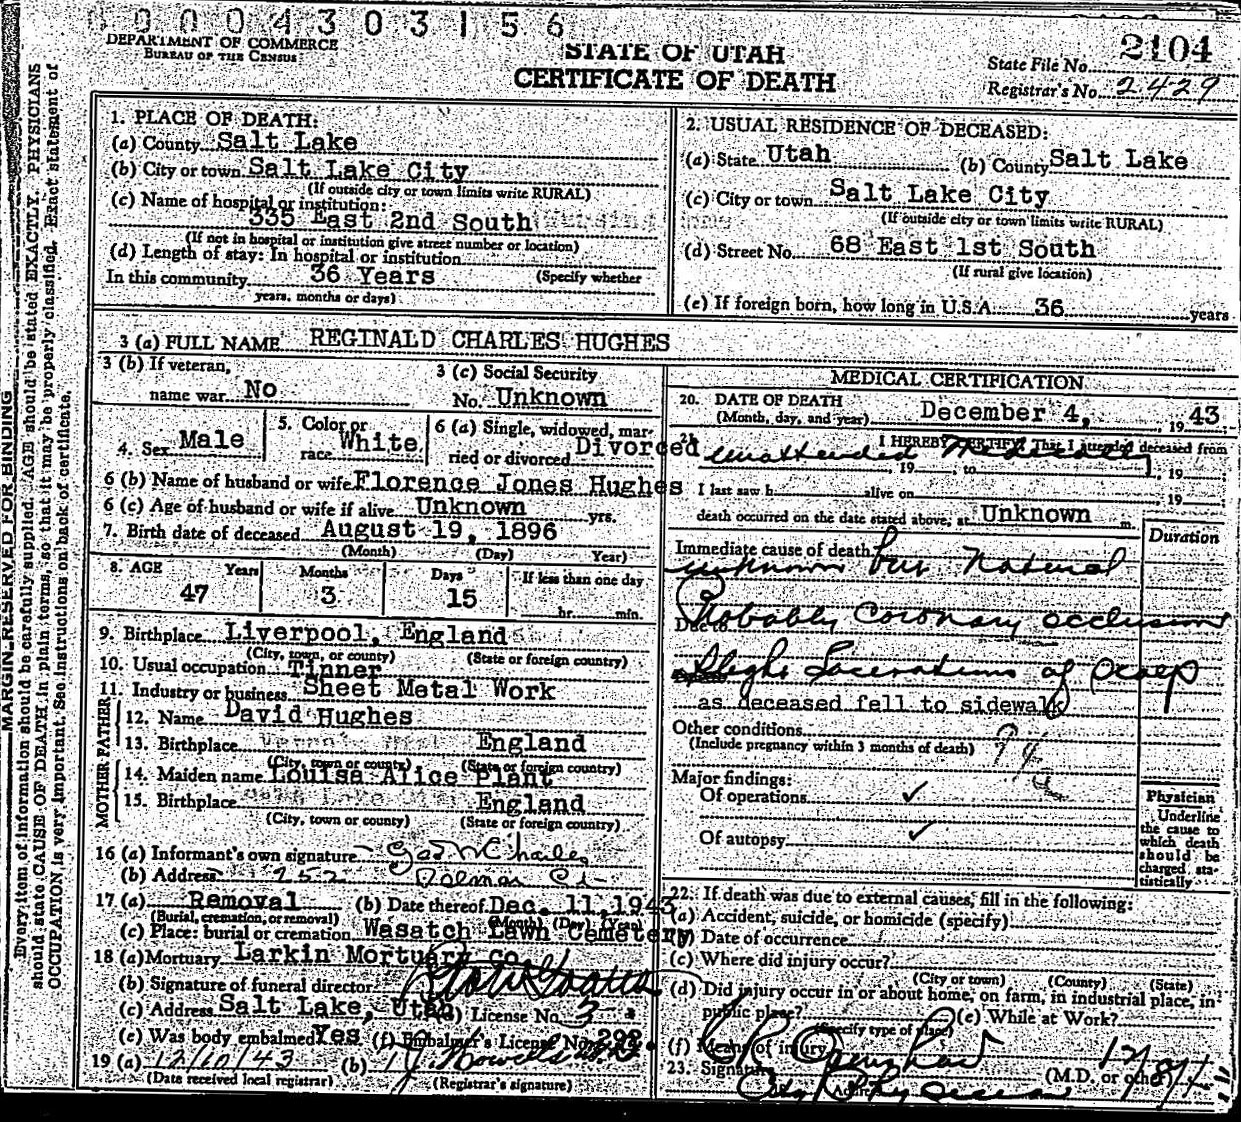 0000430 3156
DEPARTMENT OF COMMERCE
BUREAU OF THE CENSUS
STATE OF UTAH
CERTIFICATE OF DEATH
2104
State File No.
Registrar's No. 2429
MARGIN RESERVED FOR BINDING
Every item of information should be carefully supplied. AGE should be stated EXACTLY. PHYSICIANS
should state CAUSE OF DEATH in plain terms, so that it may be properly classified. Exact statement of
OCCUPATION is very important. See instructions on back of certificate.
1. PLACE OF DEATH:
(a) County Salt Lake
(b) City or town Salt Lake City
(If outside city or town limits write RURAL)
(c) Name of hospital or institution:
335 East 2nd South
(If not in hospital or institution give street number or location)
(d) Length of stay: In hospital or institution
In this community 36 Years (Specify whether
years, months or days)
2. USUAL RESIDENCE OF DECEASED:
(a) State Utah (b) County Salt Lake
(c) City or town Salt Lake City
(If outside city or town limits write RURAL)
(d) Street No. 68 East 1st South
(If rural give location)
(e) If foreign born, how long in U.S.A. 36 years
3 (a) FULL NAME REGINALD CHARLES HUGHES
3 (b) If veteran,
name war No
3 (c) Social Security
No. Unknown
4. Sex Male
5. Color or
race White
6 (a) Single, widowed, mar-
ried or divorced Divorced
6 (b) Name of husband or wife Florence Jones Hughes
6 (c) Age of husband or wife if alive Unknown yrs.
7. Birth date of deceased August 19, 1896
(Month) (Day) Year)
8. AGE Years Months Days If less than one day
47 3 15 hr. min.
9. Birthplace Liverpool, England
(City, town, or county) (State or foreign country)
10. Usual occupation Tinner
11. Industry or business Sheet Metal Work
FATHER
12. Name David Hughes
13. Birthplace England
(City, town or county) (State or foreign country)
MOTHER
14. Maiden name Louisa Alice Plant
15. Birthplace England
(City, town or county) (State or foreign country)
16 (a) Informant's own signature
(b) Address 1252
17 (a) Removal (b) Date thereof Dec. 11, 1943
(Burial, cremation, or removal) (Month) (Day) (Year)
(c) Place: burial or cremation Wasatch Lawn Cemetery
18 (a) Mortuary Larkin Mortuary Co
(b) Signature of funeral director
(c) Address Salt Lake, Utah (d) License No. 3
(e) Was body embalmed Yes (f) Embalmer's License No. 292
19 (a) 12/10/43 (b)
(Date received local registrar) (Registrar's signature)
MEDICAL CERTIFICATION
20. DATE OF DEATH
(Month, day, and year) December 4, 1943
21. I HEREBY CERTIFY, That I attended deceased from
unattended medically
, 19 , to , 19
I last saw h alive on 19
death occurred on the date stated above, at Unknown m.
Duration
Immediate cause of death
unknown but natural
Probably coronary occlusion
Due to
Slight Lacerations of scalp
as deceased fell to sidewalk
Other conditions
(Include pregnancy within 3 months of death)
Major findings:
Of operations ✓
Of autopsy ✓
Physician
Underline
the cause to
which death
should be
charged sta-
tistically
22. If death was due to external causes, fill in the following:
(a) Accident, suicide, or homicide (specify)
(b) Date of occurrence
(c) Where did injury occur?
(City or town) (County) (State)
(d) Did injury occur in or about home, on farm, in industrial place, in
public place? (e) While at Work?
(Specify type of place)
(f) Means of injury
23. Signature (M.D. or other)
City Physician